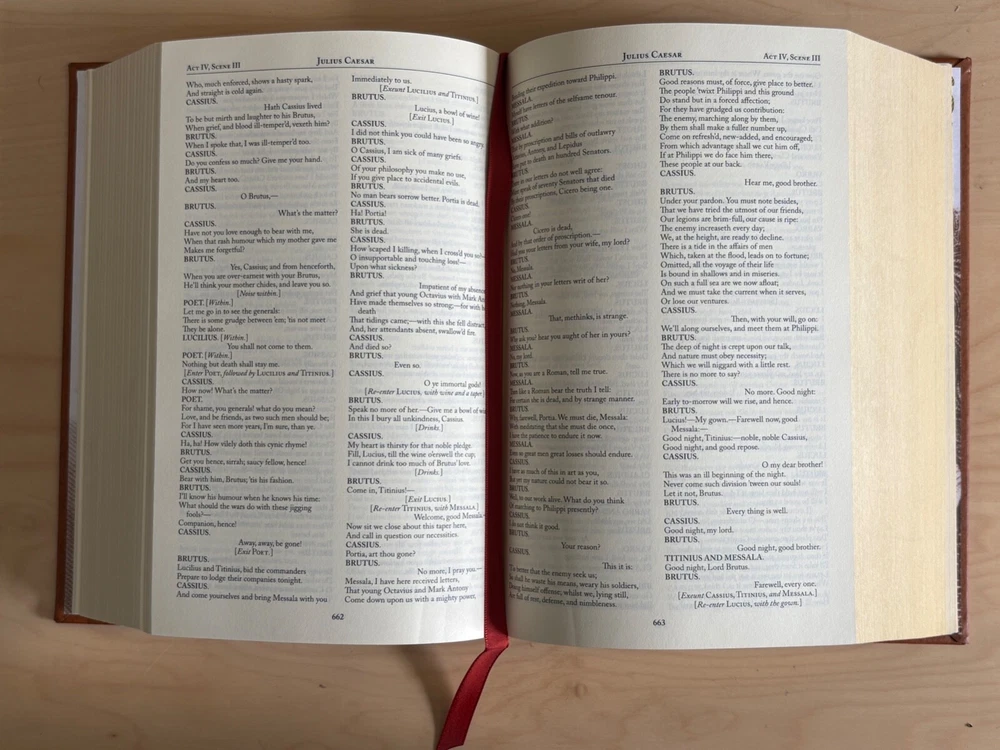 Act IV, Scene III
Julius Caesar
Who, much enforced, shows a hasty spark,
And straight is cold again.
CASSIUS.
Hath Cassius lived
To be but mirth and laughter to his Brutus,
When grief, and blood ill-temper'd, vexeth him?
BRUTUS.
When I spoke that, I was ill-temper'd too.
CASSIUS.
Do you confess so much? Give me your hand.
BRUTUS.
And my heart too.
CASSIUS.
O Brutus,—
BRUTUS.
What's the matter?
CASSIUS.
Have not you love enough to bear with me,
When that rash humour which my mother gave me
Makes me forgetful?
BRUTUS.
Yes, Cassius; and from henceforth,
When you are over-earnest with your Brutus,
He'll think your mother chides, and leave you so.
[Noise within.]
POET. [Within.]
Let me go in to see the generals:
There is some grudge between 'em; 'tis not meet
They be alone.
LUCILIUS. [Within.]
You shall not come to them.
POET. [Within.]
Nothing but death shall stay me.
[Enter POET, followed by LUCILIUS and TITINIUS.]
CASSIUS.
How now! What's the matter?
POET.
For shame, you generals! what do you mean?
Love, and be friends, as two such men should be;
For I have seen more years, I'm sure, than ye.
CASSIUS.
Ha, ha! How vilely doth this cynic rhyme!
BRUTUS.
Get you hence, sirrah; saucy fellow, hence!
CASSIUS.
Bear with him, Brutus; 'tis his fashion.
BRUTUS.
I'll know his humour when he knows his time:
What should the wars do with these jigging
fools?—
Companion, hence!
CASSIUS.
Away, away, be gone!
[Exit POET.]
BRUTUS.
Lucilius and Titinius, bid the commanders
Prepare to lodge their companies tonight.
CASSIUS.
And come yourselves and bring Messala with you
Immediately to us.
[Exeunt LUCILIUS and TITINIUS.]
BRUTUS.
Lucius, a bowl of wine!
[Exit LUCIUS.]
CASSIUS.
I did not think you could have been so angry.
BRUTUS.
O Cassius, I am sick of many griefs.
CASSIUS.
Of your philosophy you make no use,
If you give place to accidental evils.
BRUTUS.
No man bears sorrow better. Portia is dead.
CASSIUS.
Ha! Portia!
BRUTUS.
She is dead.
CASSIUS.
How 'scaped I killing, when I cross'd you so?—
O insupportable and touching loss!—
Upon what sickness?
BRUTUS.
Impatient of my absence,
And grief that young Octavius with Mark
Have made themselves so strong;—for with
death
That tidings came;—with this she fell distract,
And, her attendants absent, swallow'd fire.
CASSIUS.
And died so?
BRUTUS.
Even so.
CASSIUS.
O ye immortal gods!
[Re-enter LUCIUS, with wine and a taper.]
BRUTUS.
Speak no more of her.—Give me a bowl of
In this I bury all unkindness, Cassius.
[Drinks.]
CASSIUS.
My heart is thirsty for that noble pledge.
Fill, Lucius, till the wine o'erswell the cup,
I cannot drink too much of Brutus' love.
[Drinks.]
BRUTUS.
Come in, Titinius!—
[Exit LUCIUS.]
[Re-enter TITINIUS, with MESSALA.]
Welcome, good Messala.
Now sit we close about this taper here,
And call in question our necessities.
CASSIUS.
Portia, art thou gone?
BRUTUS.
No more, I pray you.—
Messala, I have here received letters,
That young Octavius and Mark Antony
Come down upon us with a mighty power,
662
Julius Caesar
Act IV, Scene III
their expedition toward Philippi.
MESSALA.
have letters of the selfsame tenour.
BRUTUS.
what addition?
MESSALA.
by proscription and bills of outlawry
Antony, and Lepidus
put to death an hundred Senators.
BRUTUS.
our letters do not well agree:
speak of seventy Senators that died
proscriptions, Cicero being one.
CASSIUS.
one!
MESSALA.
Cicero is dead,
And by that order of proscription.—
you your letters from your wife, my lord?
BRUTUS.
No, Messala.
MESSALA.
nothing in your letters writ of her?
BRUTUS.
Nothing, Messala.
MESSALA.
That, methinks, is strange.
BRUTUS.
Why ask you? hear you aught of her in yours?
MESSALA.
No, my lord.
BRUTUS.
Now, as you are a Roman, tell me true.
MESSALA.
Then like a Roman bear the truth I tell:
For certain she is dead, and by strange manner.
BRUTUS.
Why, farewell, Portia. We must die, Messala:
With meditating that she must die once,
I have the patience to endure it now.
MESSALA.
Even so great men great losses should endure.
CASSIUS.
I have as much of this in art as you,
But yet my nature could not bear it so.
BRUTUS.
Well, to our work alive. What do you think
Of marching to Philippi presently?
CASSIUS.
I do not think it good.
BRUTUS.
Your reason?
CASSIUS.
This it is:
'Tis better that the enemy seek us;
So shall he waste his means, weary his soldiers,
Doing himself offense; whilst we, lying still,
Are full of rest, defense, and nimbleness.
BRUTUS.
Good reasons must, of force, give place to better.
The people 'twixt Philippi and this ground
Do stand but in a forced affection;
For they have grudged us contribution:
The enemy, marching along by them,
By them shall make a fuller number up,
Come on refresh'd, new-added, and encouraged;
From which advantage shall we cut him off,
If at Philippi we do face him there,
These people at our back.
CASSIUS.
Hear me, good brother.
BRUTUS.
Under your pardon. You must note besides,
That we have tried the utmost of our friends,
Our legions are brim-full, our cause is ripe:
The enemy increaseth every day;
We, at the height, are ready to decline.
There is a tide in the affairs of men
Which, taken at the flood, leads on to fortune;
Omitted, all the voyage of their life
Is bound in shallows and in miseries.
On such a full sea are we now afloat;
And we must take the current when it serves,
Or lose our ventures.
CASSIUS.
Then, with your will, go on:
We'll along ourselves, and meet them at Philippi.
BRUTUS.
The deep of night is crept upon our talk,
And nature must obey necessity;
Which we will niggard with a little rest.
There is no more to say?
CASSIUS.
No more. Good night:
Early to-morrow will we rise, and hence.
BRUTUS.
Lucius!—My gown.—Farewell now, good
Messala:—
Good night, Titinius:—noble, noble Cassius,
Good night, and good repose.
CASSIUS.
O my dear brother!
This was an ill beginning of the night.
Never come such division 'tween our souls!
Let it not, Brutus.
BRUTUS.
Every thing is well.
CASSIUS.
Good night, my lord.
BRUTUS.
Good night, good brother.
TITINIUS AND MESSALA.
Good night, Lord Brutus.
BRUTUS.
Farewell, every one.
[Exeunt CASSIUS, TITINIUS, and MESSALA.]
[Re-enter LUCIUS, with the gown.]
663